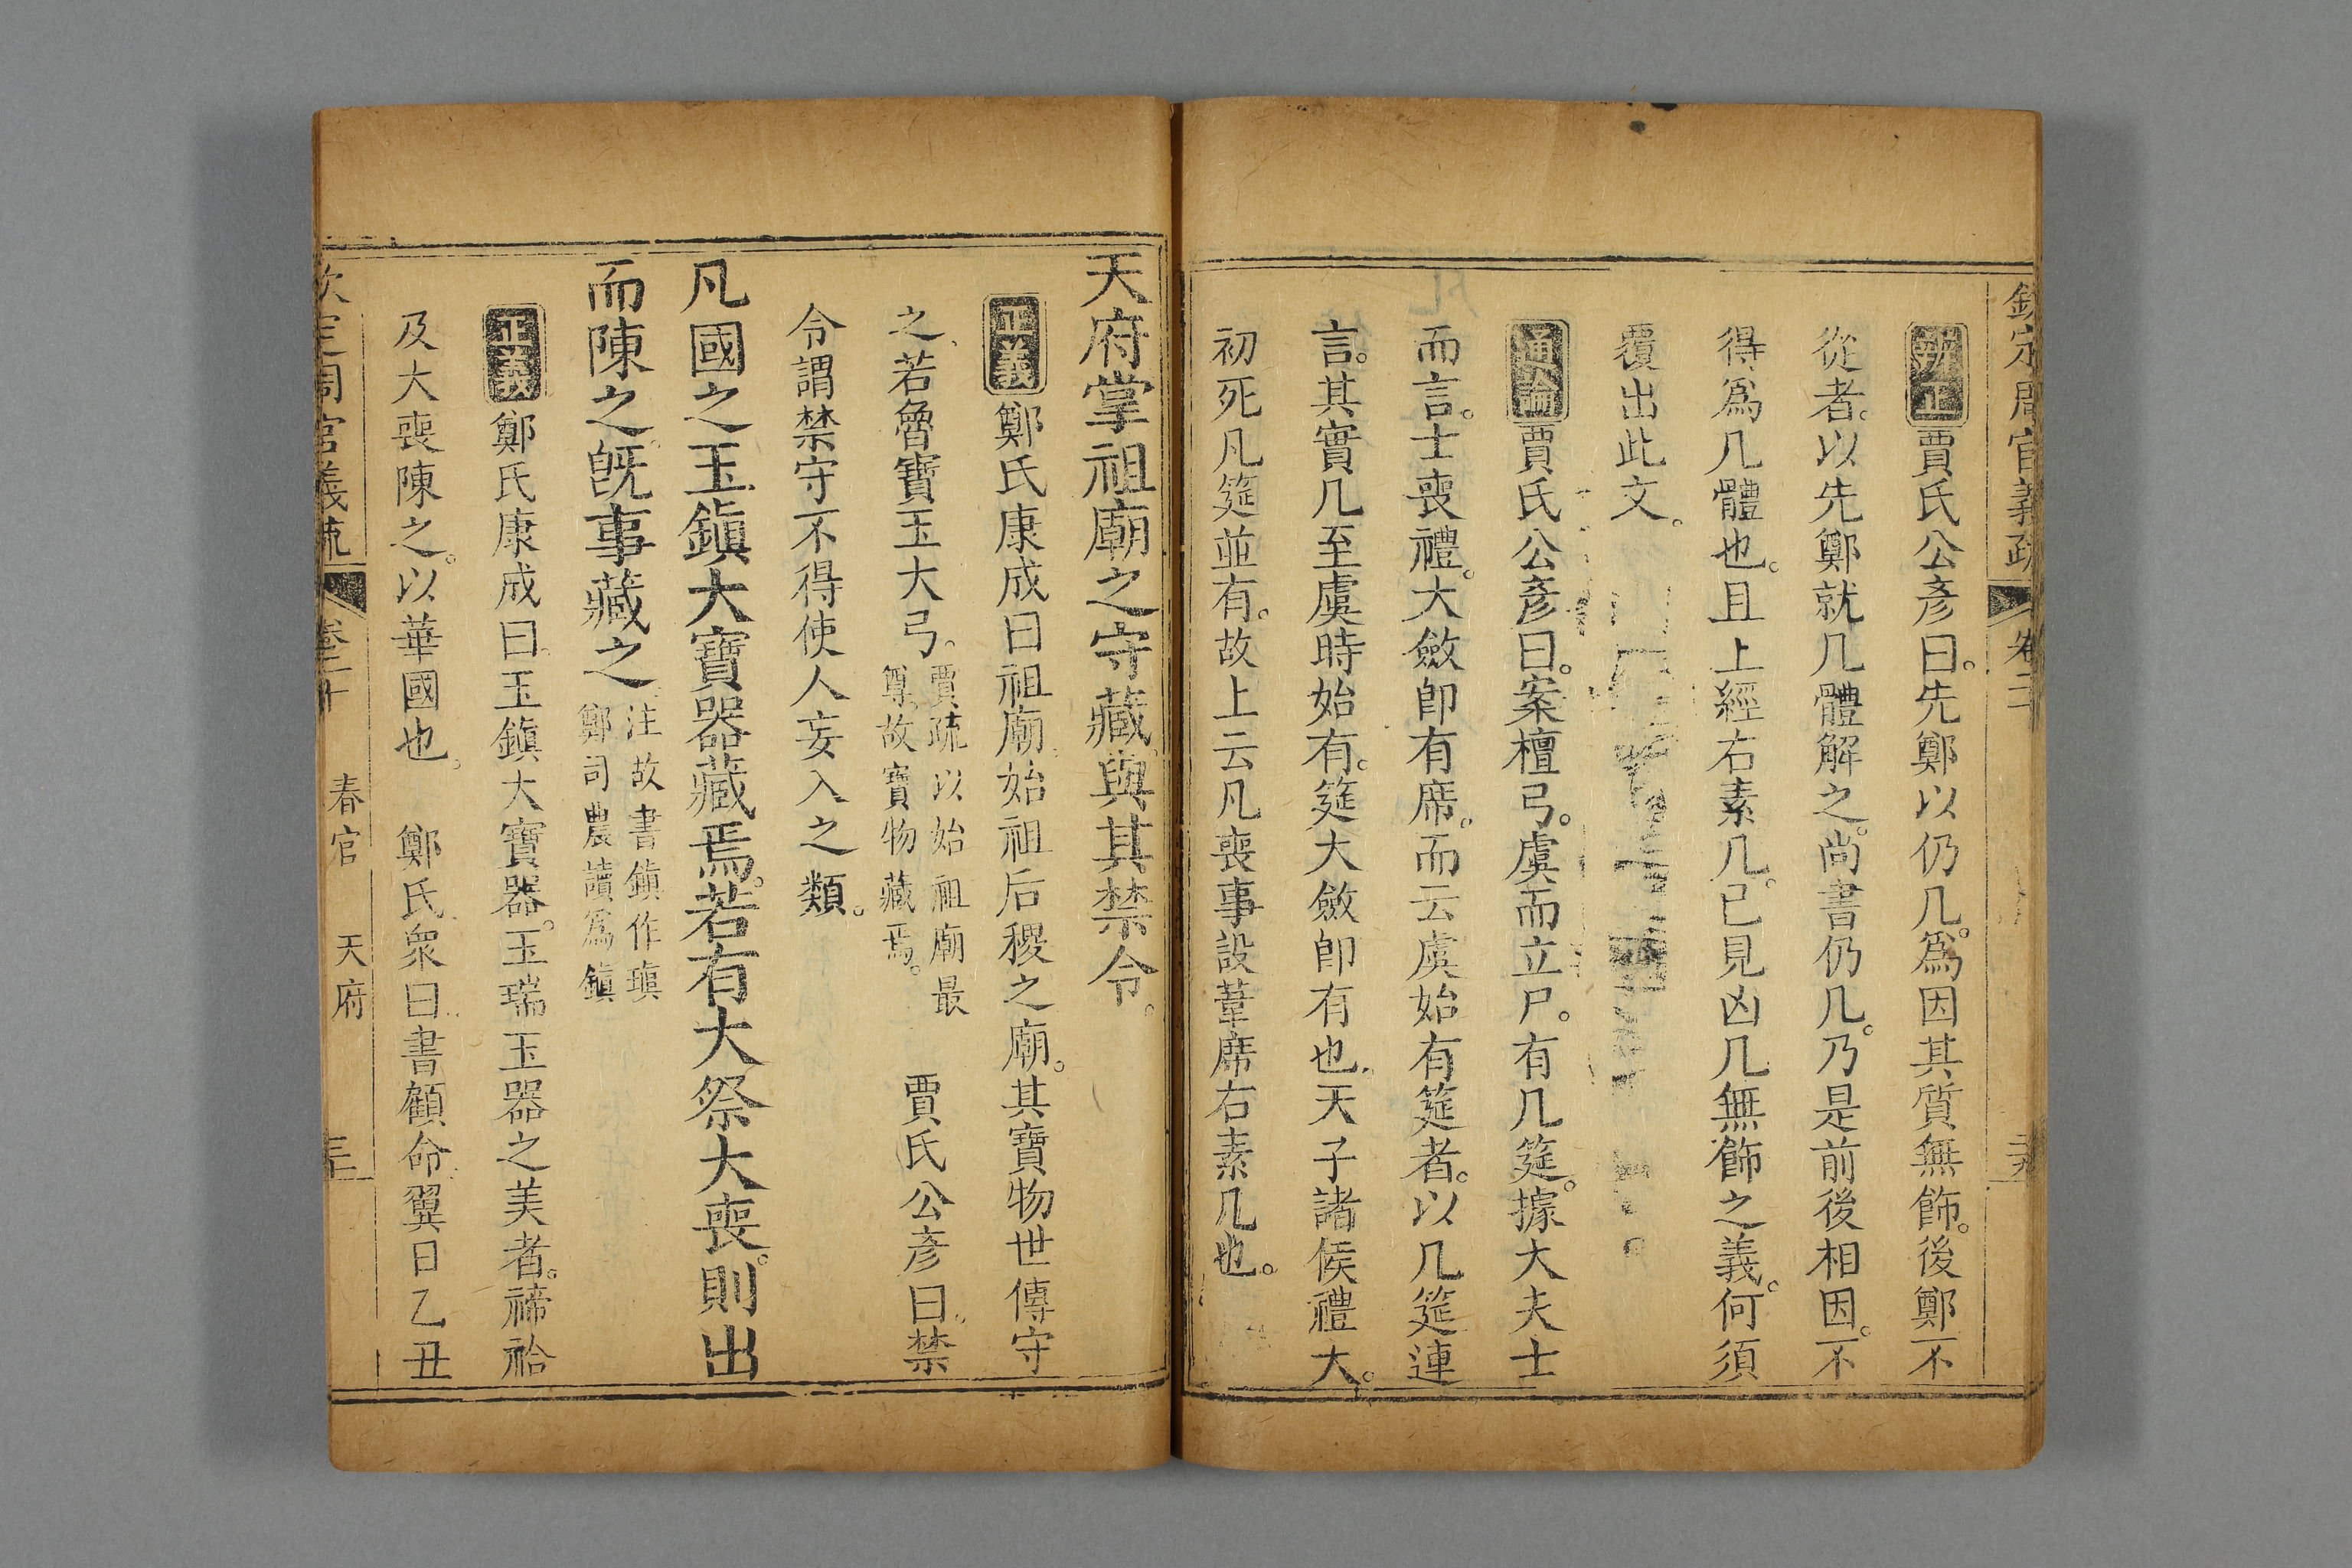 欽定周官義疏 卷二十
辨正 賈氏公彥曰。先鄭以仍几。爲因其質無飾。後鄭不
從者。以先鄭就几體解之。尚書仍几。乃是前後相因。不
得爲几體也。且上經右素几。已見凶几無飾之義。何須
覆出此文。
通論 賈氏公彥曰。案檀弓。虞而立尸。有几筵。據大夫士
而言。士喪禮。大斂卽有席。而云虞始有筵者。以几筵連
言。其實几至虞時始有。筵大斂卽有也。天子諸侯禮大。
初死几筵並有。故上云凡喪事設葦席右素几也。
天府掌祖廟之守藏。與其禁令。
正義 鄭氏康成曰。祖廟。始祖后稷之廟。其寶物世傳守
之。若魯寶玉大弓。賈疏以始祖廟最
尊。故寶物藏焉。 賈氏公彥曰。禁
令謂禁守不得使人妄入之類。
凡國之玉鎭大寶器藏焉。若有大祭大喪。則出
而陳之。旣事藏之。注故書鎭作瑱
鄭司農讀爲鎭
正義 鄭氏康成曰。玉鎭大寶器。玉瑞玉器之美者。禘祫
及大喪陳之。以華國也。 鄭氏衆曰。書顧命。翼日乙丑
欽定周官義疏 卷二十 春官 天府 三